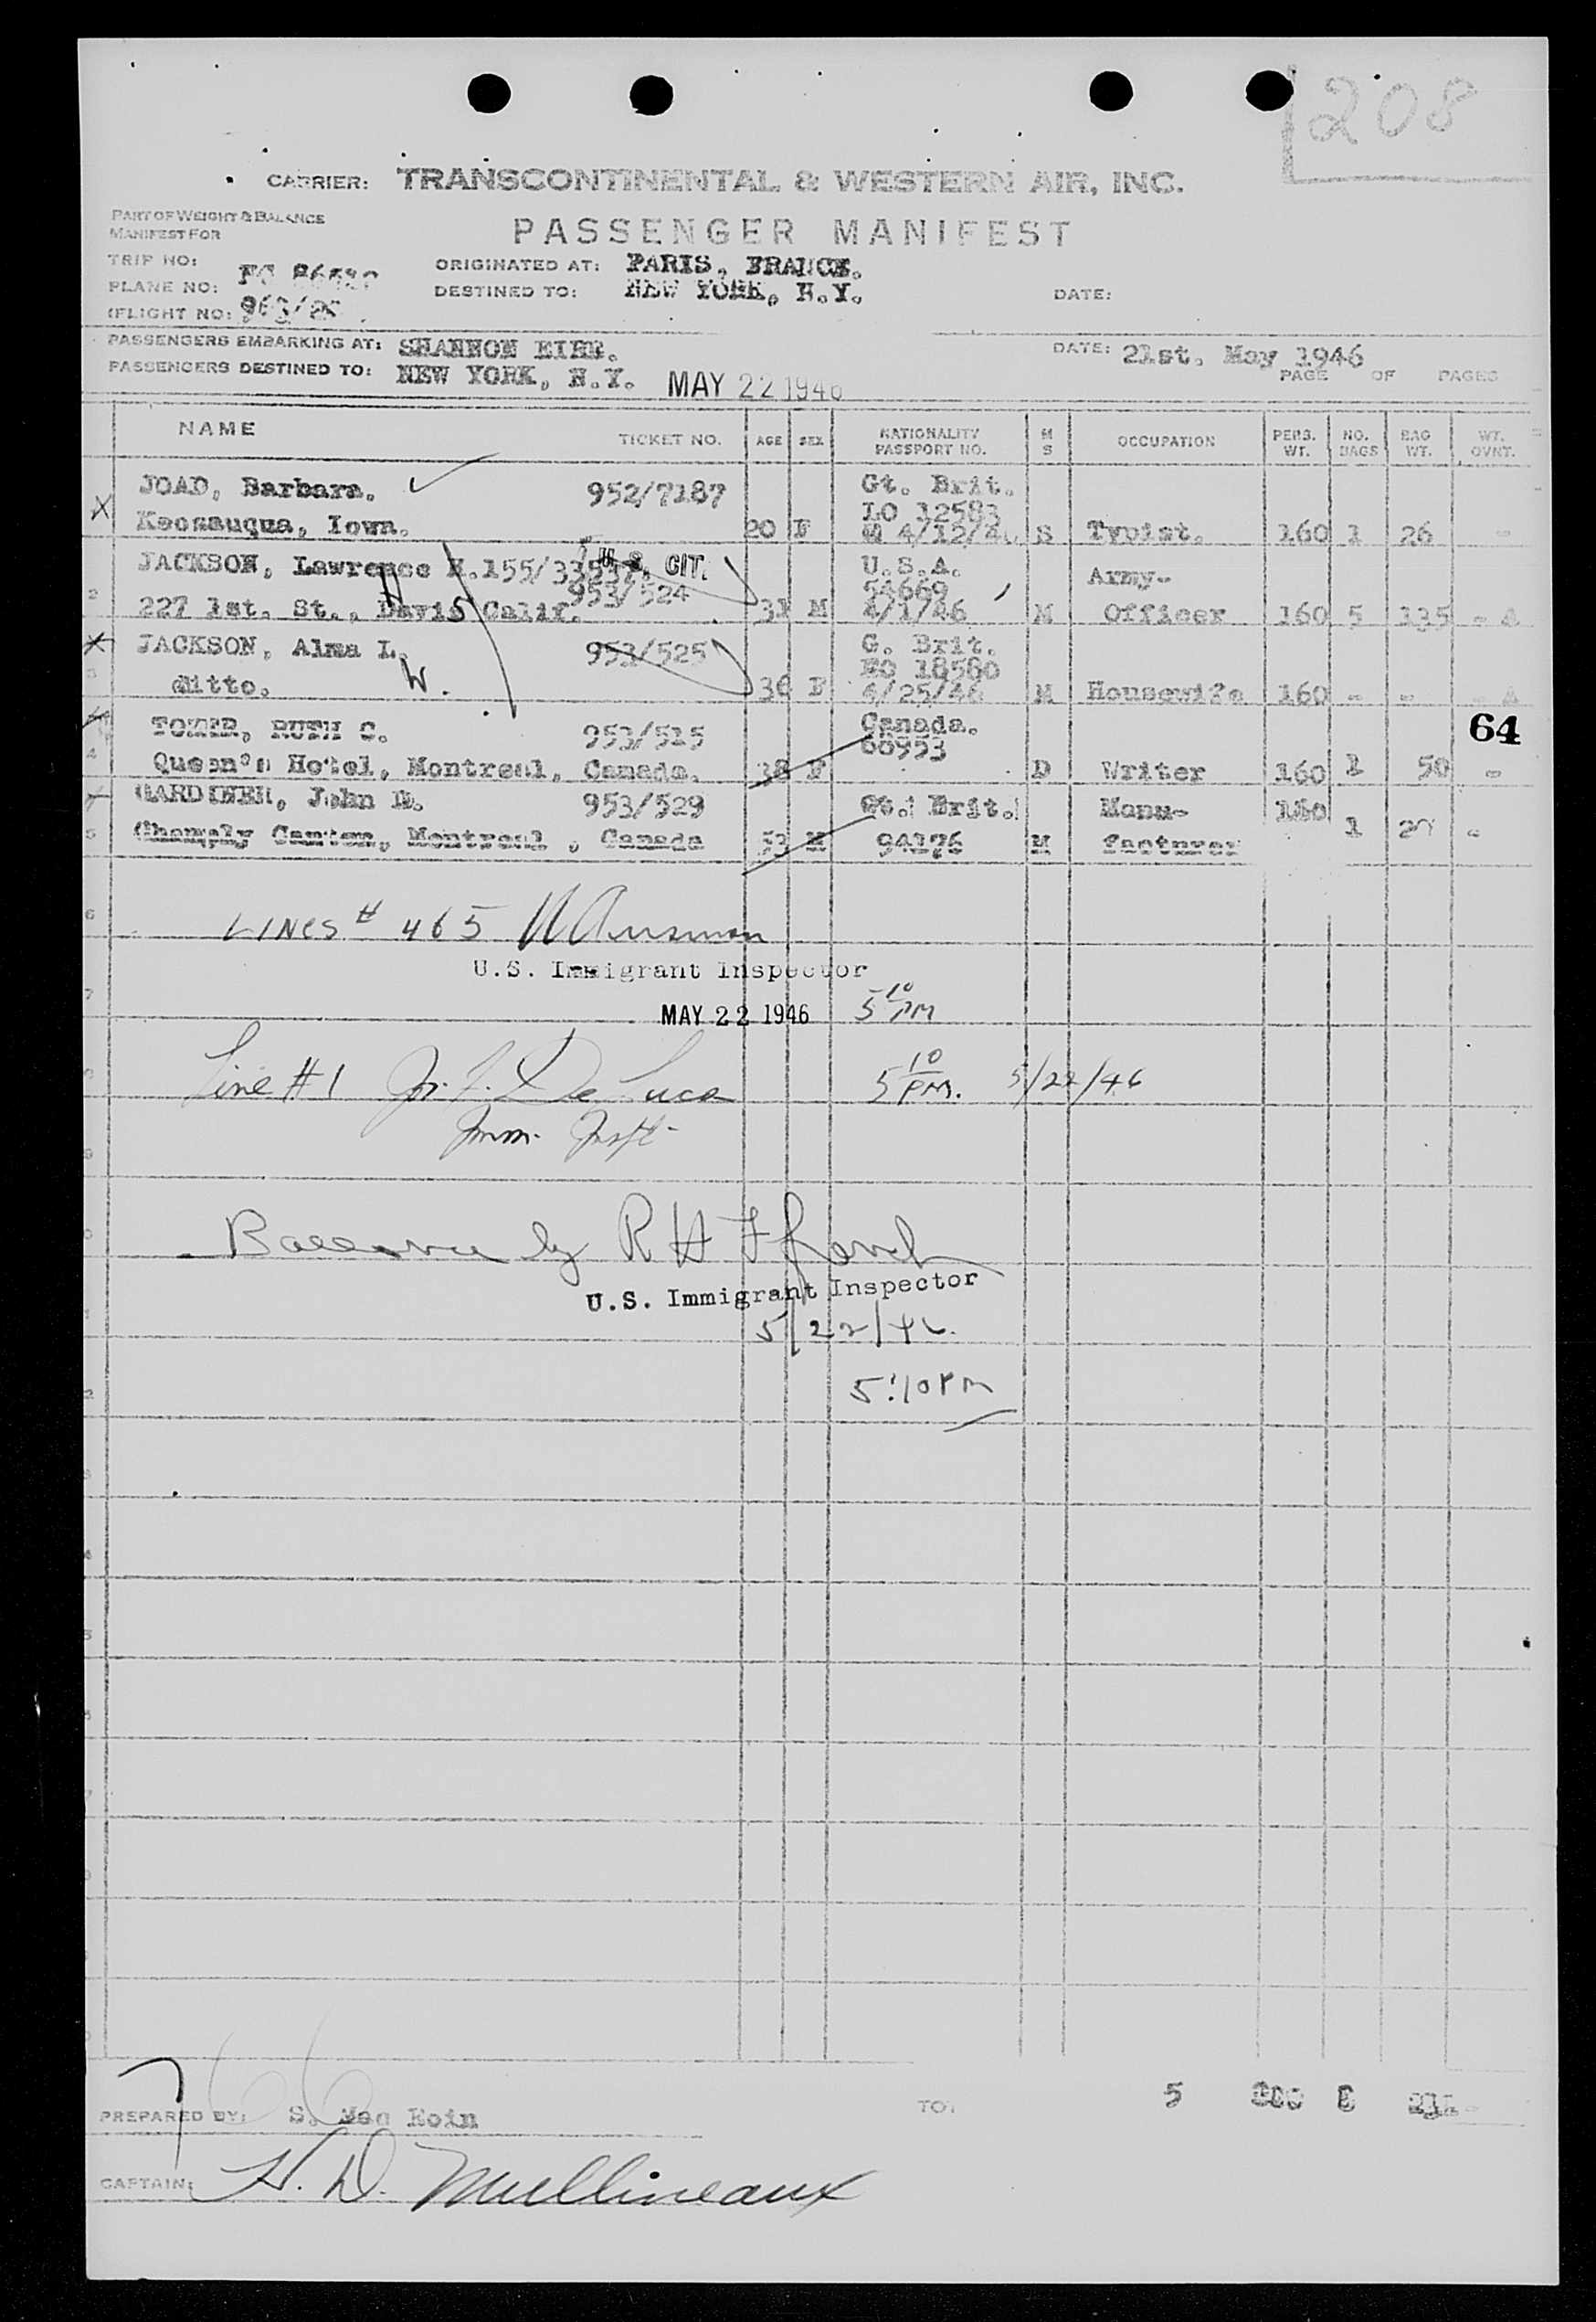 208
CARRIER: TRANSCONTINENTAL & WESTERN AIR, INC.
PART OF WEIGHT & BALANCE
MANIFEST FOR
PASSENGER MANIFEST
TRIP NO:
PLANE NO:
ORIGINATED AT: PARIS, FRANCE.
DESTINED TO: NEW YORK, N.Y.
DATE:
(FLIGHT NO: 963/
PASSENGERS EMBARKING AT: SHANNON EIRE.
DATE: 21st. May 1946
PASSENGERS DESTINED TO: NEW YORK, N.Y. MAY 22 1946
PAGE OF PAGES
NAME TICKET NO. AGE SEX NATIONALITY PASSPORT NO. M S OCCUPATION PERS. WT. NO. BAGS BAG WT. WT. OVNT.
JOAD, Barbara. 952/7187 Gt. Brit.
LO 12583
X Keosauqua, Iowa. 20 F 4/12/46 S Typist. 160 1 26 -
JACKSON, Lawrence H. 155/33537 U.S. CIT. U.S.A. Army-
2 953/524 54669
227 1st. St., Davis Calif. 31 M 4/1/46 M Officer 160 5 135 -
X JACKSON, Alma L. 953/525 G. Brit.
3 18580
ditto. W. 36 F 4/25/46 M Housewife 160 - -
RUTH C. 953/515 Canada.
64
4 66953
Queen's Hotel, Montreal, Canada. 38 F D Writer 160 1 50 -
GARDINER, John D. 953/529 Gt. Brit. Manu- 160
5 Montreal, Canada 53 M 94176 M facturer 1 -
6 LINES # 4 & 5
U.S. Immigrant Inspector
7 MAY 22 1946 5 10 PM
Line #1 De Luca 5 10 PM. 5/22/46
Imm. Inspt-
by R H
U.S. Immigrant Inspector
5/22/46.
5:10 PM
766
PREPARED BY: S. Mac Eoin
TO: 5 8
CAPTAIN: H. D. Mullineaux